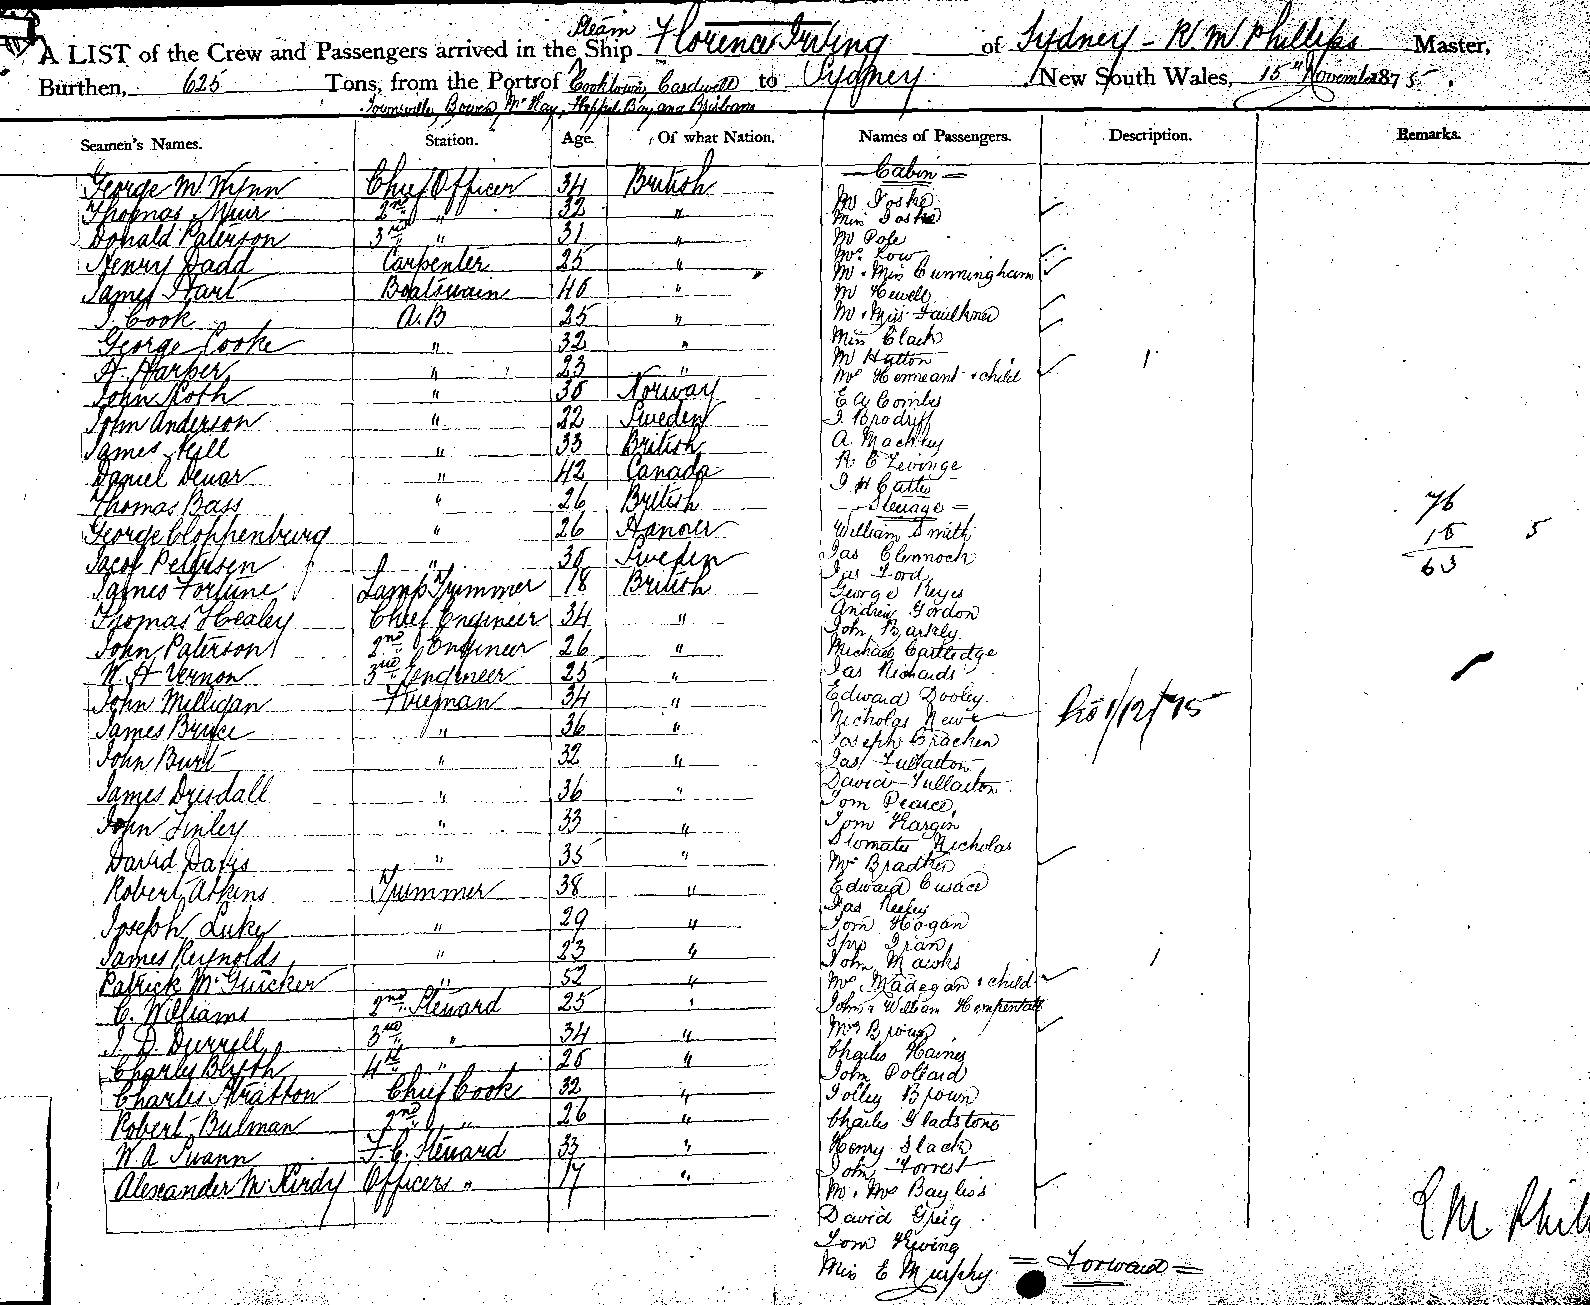 Steam
A LIST of the Crew and Passengers arrived in the Ship Florence Irving of Sydney - R M Phillips Master,
Burthen, 625 Tons, from the Port of Cooktown, Cardwell to Sydney New South Wales, 15th November 1875.
Townsville, Bowen, McKay, Keppel Bay and Brisbane
Seamen's Names. Station. Age. Of what Nation. Names of Passengers. Description. Remarks.
George M Wynn Chief Officer 34 British
Thomas Muir 2nd " 32 "
Donald Paterson 3rd " 31 "
Henry Dadd Carpenter 25 "
James Hart Boatswain 40 "
J. Cook A.B 25 "
George Cooke " 32 "
H. Harper " 23 "
John Roth " 30 Norway
John Anderson " 22 Sweden
James Hill " 33 British
Daniel Dewar " 42 Canada
Thomas Bass " 26 British
George Cloppenburg " 26 Hanover
Jacob Petersen " 30 Sweden
James Fortune Lamp Trimmer 18 British
Thomas Healey Chief Engineer 34 "
John Paterson 2nd Engineer 26 "
W. H Vernon 3rd Engineer 25 "
John Milligan Fireman 34 "
James Bryce " 36 "
John Burt " 32 "
James Drisdall " 36 "
John Finley " 33 "
David Davis " 35 "
Robert Atkins Trimmer 38 "
Joseph Luke " 29 "
James Reynolds " 23 "
Patrick McGuicker " 52 "
C. Williams 2nd Steward 25 "
J. D. Durrell 3rd " 34 "
Charly Blyth 4th " 20 "
Charles Stratton Chief Cook 32 "
Robert Bulman 2nd " 26 "
W. A Swann F. C. Steward 33 "
Alexander McKirdy Officers " 17 "
Cabin
Mr Joske
Miss Joske
Mr Pole
Mrs Low
Mr & Miss Cunningham
Mr Hewell
Mr & Miss Faulkner
Miss Clark
Mr Hutton
Mrs Henneant & child 1
E A Combes
J. Brodziff
A. Mackay
R C Levinge
J H Catto
Steerage
William Smith
Jas Clennoch
Jas Ford
George Keyes
Andrew Gordon
John Barkly
Michael Cartledge
Jas Richards
Edward Dooley
Nicholas 1/12/75
Joseph Bracken
Jas Fullarton
David Fullarton
Tom Pearce
Tom Hargin
Nicholas
Mrs
Edward Cusack
Jas
Tom Hogan
John Mawks
Mrs Madegan & child 1
John & William
Mrs Brown
Charles Haines
John Pollard
Brown
Charles Gladstone
Henry Slack
John Forrest
Mr & Mrs Bayliss
David Greig
Tom
Miss E Murphy
Forward
76
15 5
63